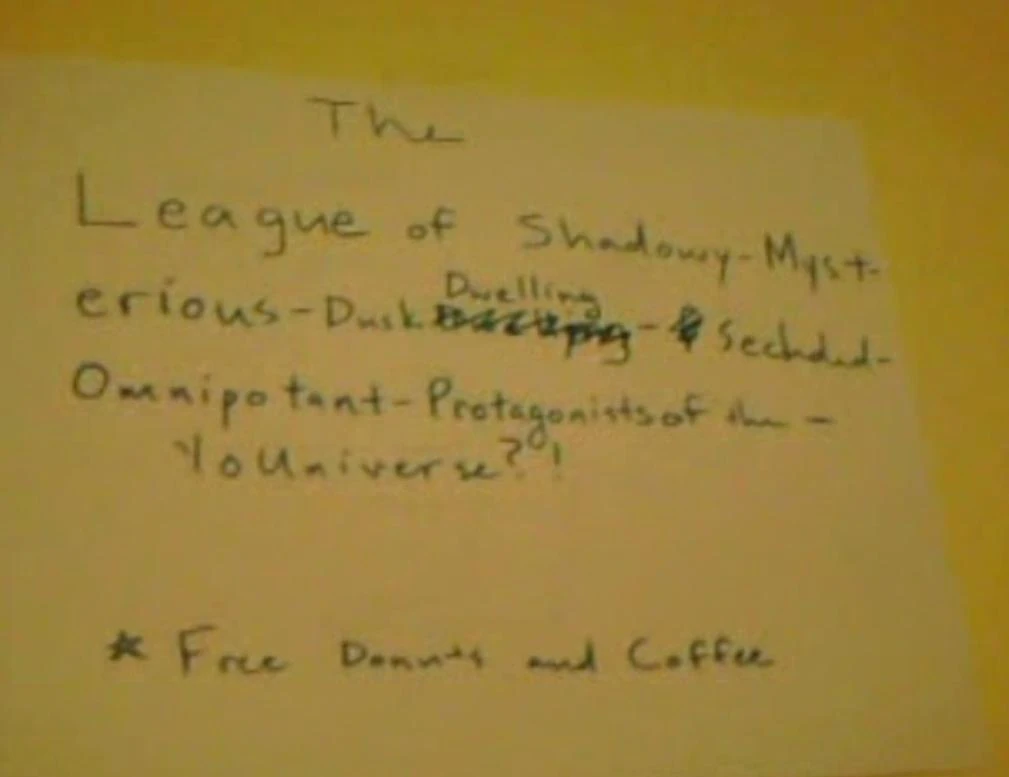 The
League of Shadowy-Myst-
erious-Dusk Dwelling - Secluded-
Omnipotant-Protagonists of the -
YoUniverse?!
* Free Donuts and Coffee